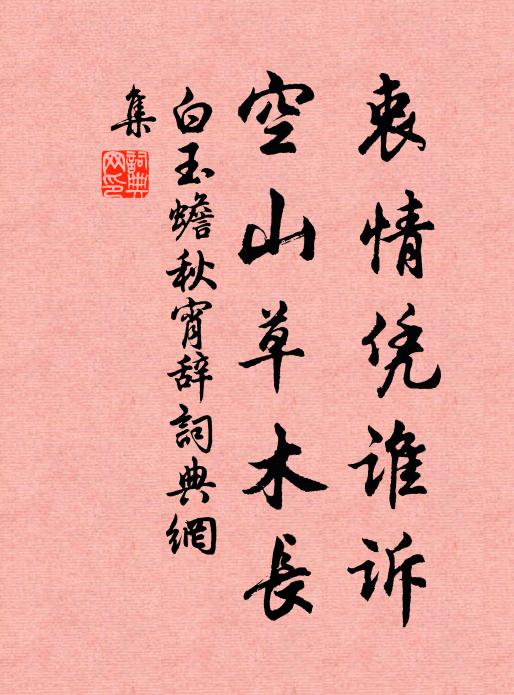 衷情凭谁诉
空山草木長
白玉蟾秋宵辞詞典網
集
詞典
网印